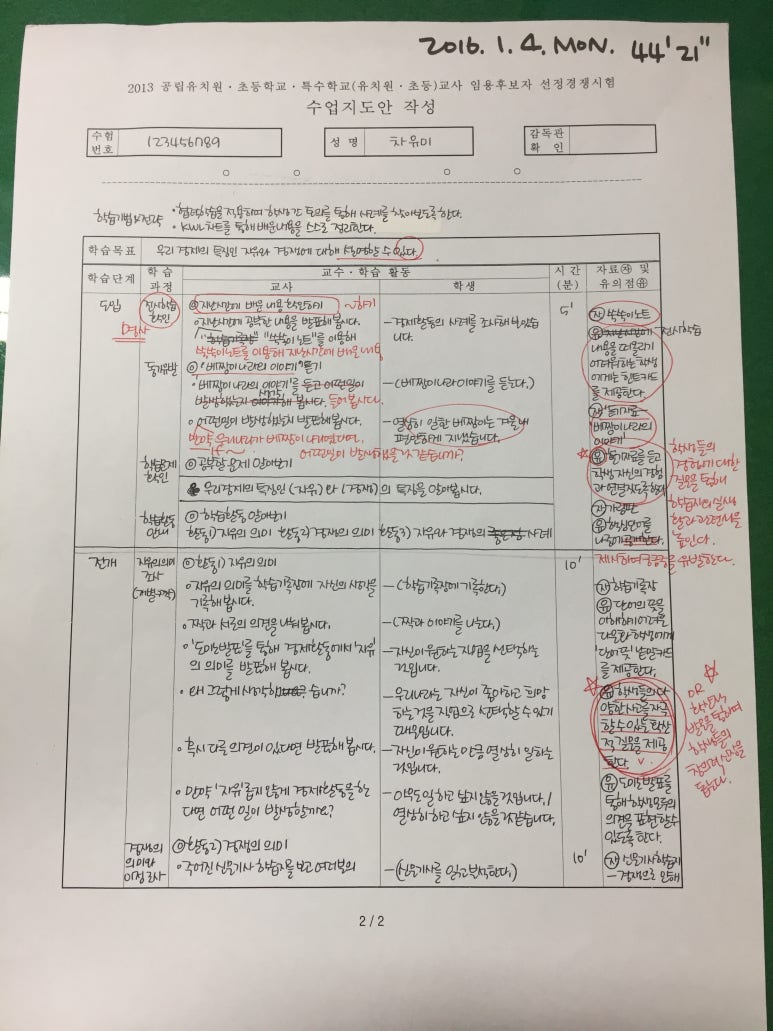 2016. 1. 4. MON. 44'21"
2013 공립유치원·초등학교·특수학교(유치원·초등)교사 임용후보자 선정경쟁시험
수업지도안 작성
수험번호 123456789 성명 차유미 감독관확인
학습기법및전략 • 협력학습을 적용하여 학생간 토의를 통해 사례를 찾아보도록 한다.
• KWL차트를 통해 배운내용을 스스로 정리한다.
학습목표 우리 경제의 특징인 자유와 경쟁에 대해 설명할 수 있다.
학습단계 학습과정 교수·학습 활동 시간(분) 자료㉶ 및 유의점㉴
교사 학생
도입 전시학습확인 ◎ 지난시간에 배운 내용 확인하기 ~하기 5' ㉶ 쏙쏙이노트
명사
• 지난시간에 공부한 내용을 발표해 봅시다. - 경제활동의 사례를 조사해 보았습니다.
"쏙쏙이 노트"를 이용해
쏙쏙이노트를 이용해 지난시간에 배운 내용
㉴ 전시학습
내용을 떠올리기
어려워하는 학생
에게는 힌트카드
를 제공한다.
동기유발 ◎ '베짱이나라의 이야기' 듣기
• '베짱이나라의 이야기'를 듣고 어떤일이 - (베짱이나라이야기를 듣는다.)
발생했을지 봅시다. 들어봅시다.
• 어떤일이 발생했을지 발표해 봅시다. - 열심히 일한 베짱이는 겨울내
편안하게 지냈습니다.
만약 우리나라가 베짱이 나라였다면,
어떤일이 발생했을것 같습니까?
베짱이나라의
이야기
㉴ 듣기자료를 듣고
학생 자신의 경험
학생들의
경험하기 대한
질문을 통해
학습자의 실생
활과 관련성을
높인다.
학습문제확인 ◎ 공부할 문제 알아보기
우리경제의 특징인 (자유)와 (경쟁)의 특징을 알아봅시다.
학습활동안내 ◎ 학습활동 알아보기
활동1) 자유의 의미 활동2) 경쟁의 의미 활동3) 자유와 경쟁의 사례
㉶ 가림판
㉴ 학습문제를
제시하여 궁금증을 유발한다.
전개 자유의의미조사 ◎ 활동1) 자유의 의미 10'
• 자유의 의미를 학습기록장에 자신의 생각을 - (학습기록장에 기록한다.) ㉶ 학습기록장
기록해 봅시다.
• 짝과 서로의 의견을 나눠봅시다. - (짝과 이야기를 나눈다.)
㉴ 단어의 뜻을
이해하기 어려운
다문화 학생에게
'단어 뜻' 낱말카드
를 제공한다.
• '도미노발표'를 통해 경제활동에서 '자유' - 자신이 원하는 직업을 선택하는
의 의미를 발표해 봅시다. 것입니다.
• 왜 그렇게 생각했습니까? - 우리나라는 자신이 좋아하고 희망
하는것을 직업으로 선택할 수 있기
때문입니다.
㉴ 학생들의 다
양한 사고를 자극
할 수 있는 확산
적 질문을 제공
한다.
OR
확산적
발문을 통하여
학생들의
창의적 신장을
돕는다.
• 혹시 다른 의견이 있다면 발표해 봅시다. - 자신이 원하는 만큼 열심히 일하는
것입니다.
• 만약 '자유'롭지 않게 경제활동을 한 - 아무도 일하고 싶지 않을 것입니다./
다면 어떤 일이 발생할까요? 열심히 하고 싶지 않을 것 같습니다.
㉴ 도미노발표를
통해 학생모두의
의견을 표현할 수
있도록 한다.
경쟁의 의미와 이점 조사 ◎ 활동2) 경쟁의 의미 10' ㉶ 신문기사학습지
• 주어진 신문기사 학습지를 보고 여러분의 - (신문기사를 읽고 분석한다.) - 경쟁으로 인해
2 / 2